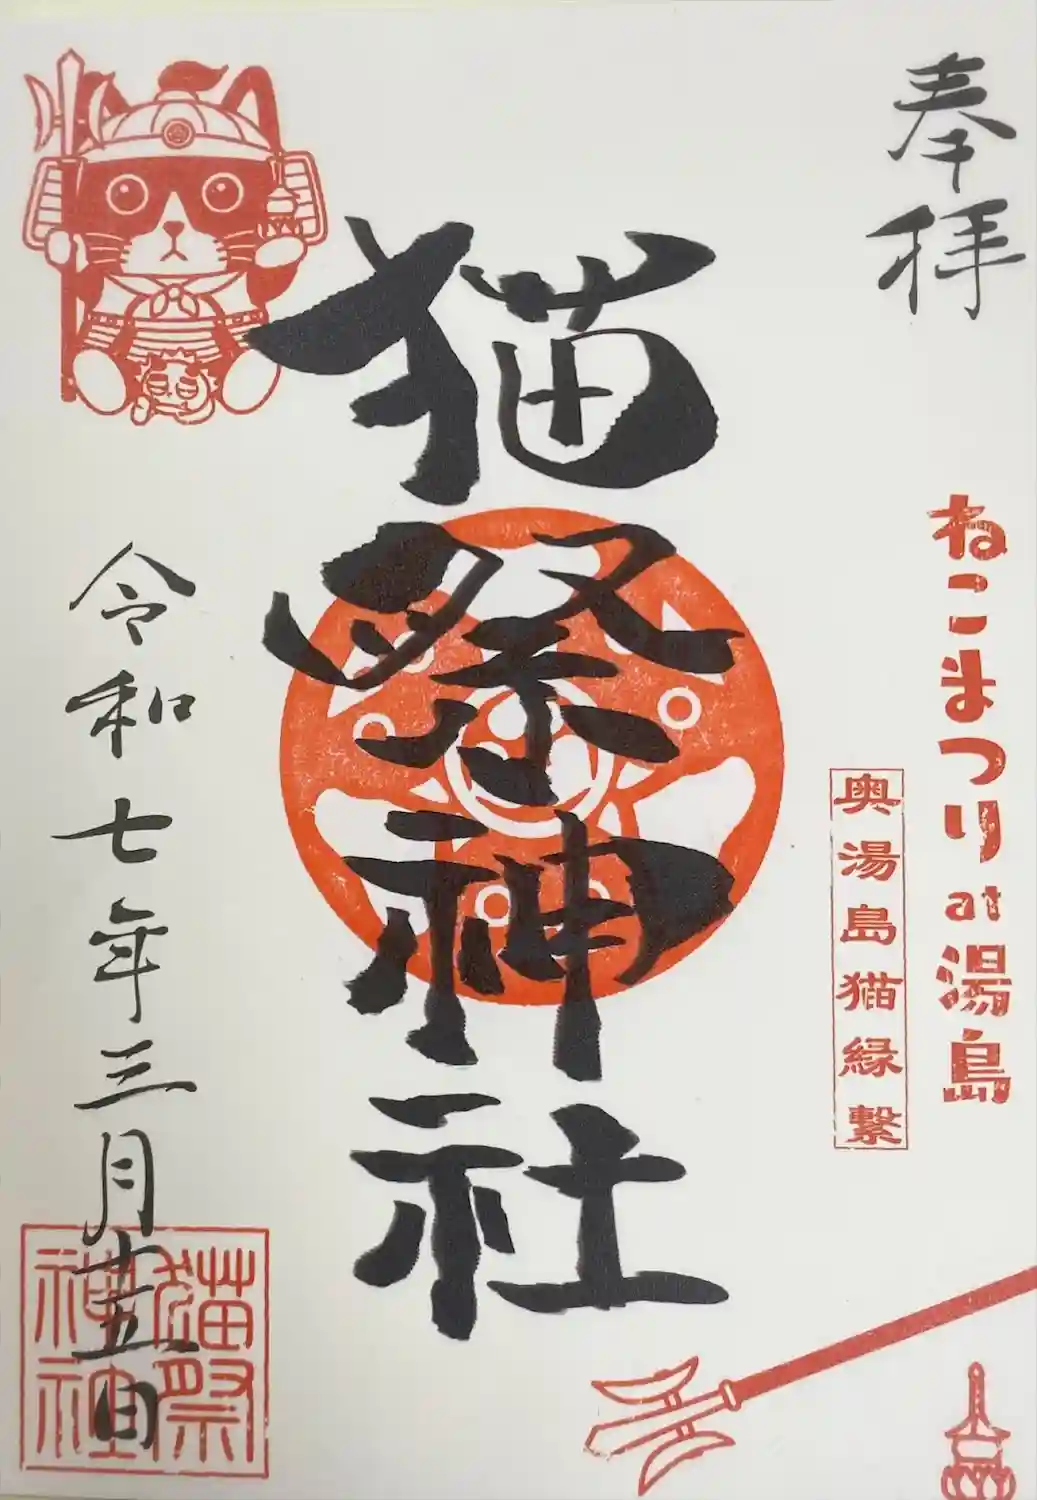 奉拝
ねこまつり at 湯島
奥湯島猫縁繋
猫祭神社
令和七年三月十五日
猫祭
神社